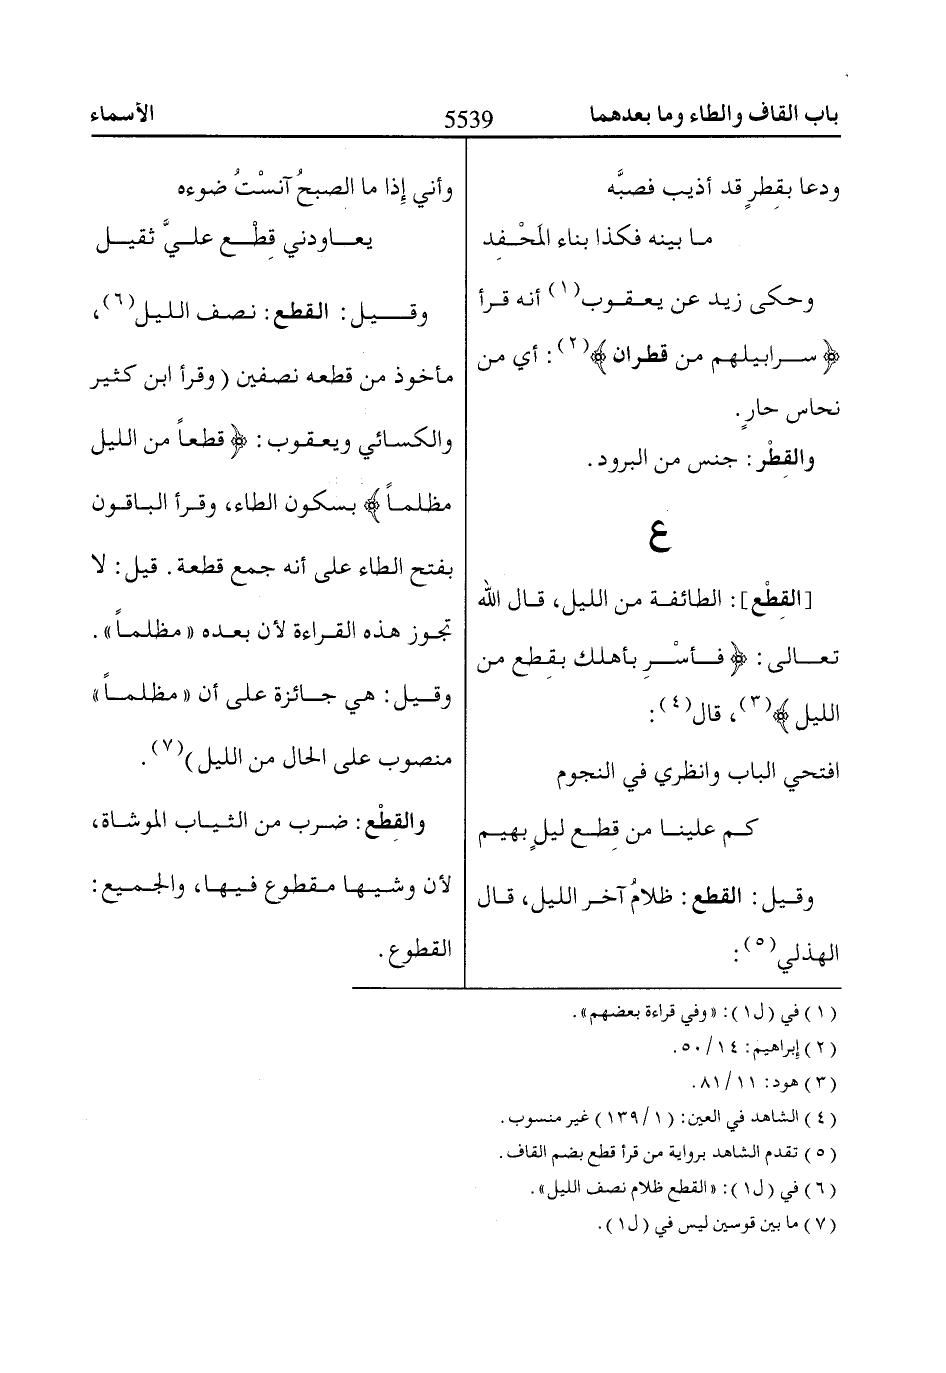 باب القاف والطاء وما بعدهما
5539
الأسماء
ودعا بقِطرٍ قد أذيب فصبَّه
ما بينه فكذا بناء المَحْفِد
وحكى زيد عن يعقوب(١) أنه قرأ
﴿ سرابيلهم من قطران ﴾(٢): أي من
نحاس حارٍ.
والقِطْر: جنس من البرود.
ع
[القِطْع]: الطائفة من الليل، قال الله
تعالى: ﴿ فأسْر بأهلك بقِطع من
الليل ﴾(٣)، قال(٤):
افتحي الباب وانظري في النجوم
كم علينا من قِطع ليلٍ بهيم
وقيل: القطع: ظلامُ آخر الليل، قال
الهذلي(٥):
وأني إذا ما الصبحُ آنسْتُ ضوءه
يعاودني قِطْع عليَّ ثقيل
وقيل: القطع: نصف الليل(٦)،
مأخوذ من قطعه نصفين ( وقرأ ابن كثير
والكسائي ويعقوب: ﴿ قطعاً من الليل
مظلماً ﴾ بسكون الطاء، وقرأ الباقون
بفتح الطاء على أنه جمع قطعة. قيل: لا
تجوز هذه القراءة لأن بعده «مظلماً».
وقيل: هي جائزة على أن «مظلماً»
منصوب على الحال من الليل)(٧).
والقِطْع: ضرب من الثياب الموشاة،
لأن وشيها مقطوع فيها، والجميع:
القطوع.
(١) في (ل١): «وفي قراءة بعضهم».
(٢) إبراهيم: ١٤/ ٥٠.
(٣) هود: ١١/ ٨١.
(٤) الشاهد في العين: (١/ ١٣٩) غير منسوب.
(٥) تقدم الشاهد برواية من قرأ قطع بضم القاف.
(٦) في (ل١): «القطع ظلام نصف الليل».
(٧) ما بين قوسين ليس في (ل١).